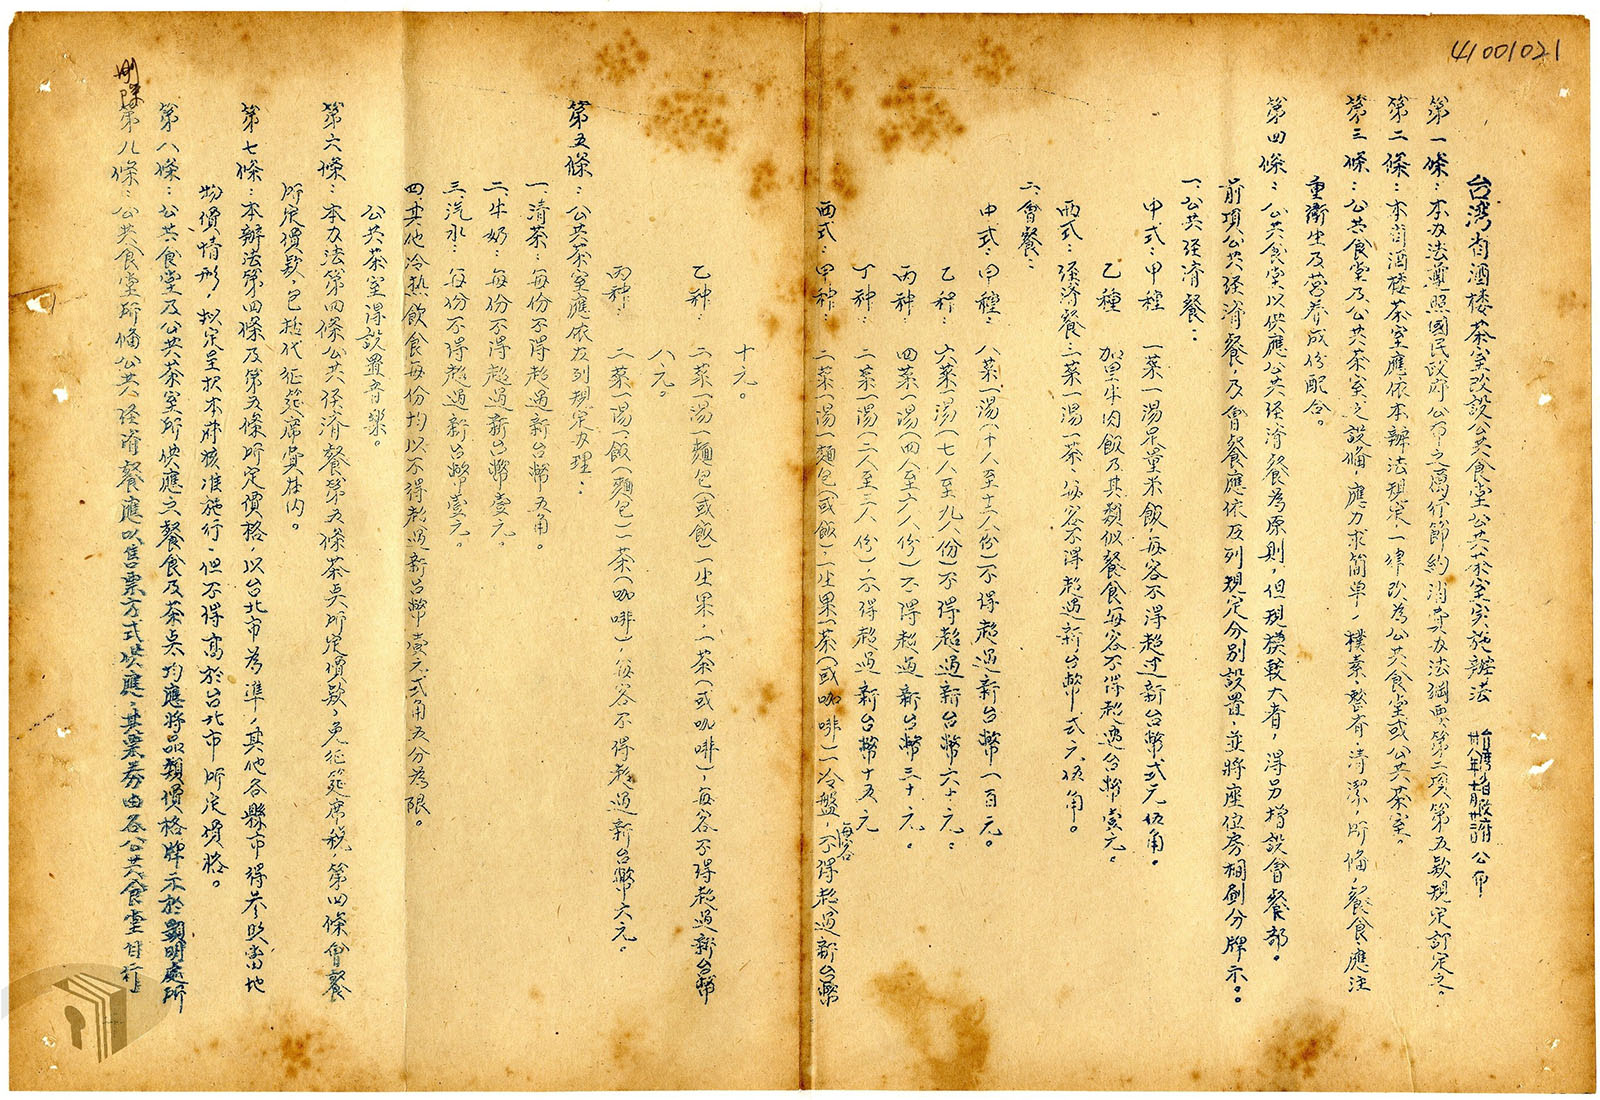 41001021
台湾省酒楼茶室改設公共食堂公共茶室实施辦法 台灣省政府卅八年十月廿二日公布
第一條：本办法遵照國民政府公布之厲行節約消費办法綱要第二項第五款規定訂定之。
第二條：本省酒楼茶室應依本辦法規定一律改為公共食堂或公共茶室。
第三條：公共食堂及公共茶室之設俻，應力求簡单，樸素，整齊清潔，所俻，餐食應注
重衛生及营养成份配合。
第四條：公共食堂以供應公共经済餐為原則，但規模較大者，得另増設會餐部。
前項公共经済餐，及會餐應依及列規定分別設置，並將座位房棡劃分牌示。
一、公共经済餐：
中式：甲種 一菜一湯足量米飯，每客不得超过新台幣弍元伍角。
乙種 加里牛肉飯及其類似餐食每客不得超過台幣壹元。
西式：经済餐：二菜一湯一茶：每客不得超過新台幣弍元伍角。
二、會餐：
中式：甲種： 八菜一湯（十人至十二人份）不得超過新台幣一百元。
乙种： 六菜一湯（七人至九人份）不得超過新台幣六十元。
丙种： 四菜一湯（四人至六人份）不得超過新台幣三十元。
丁种： 二菜一湯（二人至三人份），不得超過新台幣十五元
西式：甲种： 二菜一湯一麵包（或飯），一生果一茶（或咖啡）一冷盤，每客不得超過新台幣
十元。
乙种： 二菜一湯一麵包（或飯）一生果，一茶（或咖啡），每客不得超過新台幣
八元。
丙种： 二菜一湯一飯（麵包）一茶（咖啡），每客不得超過新台幣六元。
第五條：公共茶室應依左列規定办理：
一、清茶：每份不得超過新台幣五角。
二、牛奶：每份不得超過新台幣壹元。
三、汽水：每份不得超過新台幣壹元。
四、其他冷熱飲食每份均以不得超過新台幣壹元弍角五分為限。
公共茶室得設置音樂。
第六條：本办法第四條公共经済餐第五條茶点所定價款，免征筵席税，第四條會餐
所定價款，包括代征筵席費在内。
第七條：本辦法第四條及第五條所定價格，以台北市為準，其他各縣市得参照當地
物價情形，拟定呈报本府核准施行，但不得高於台北市所定價格。
第八條：公共食堂及公共茶室所供應之餐食及茶点均應將品類價格牌示於顕明處所
刪除
第九條：公共食堂所俻公共经済餐應以售票方式供應，其票券由各公共食堂自行